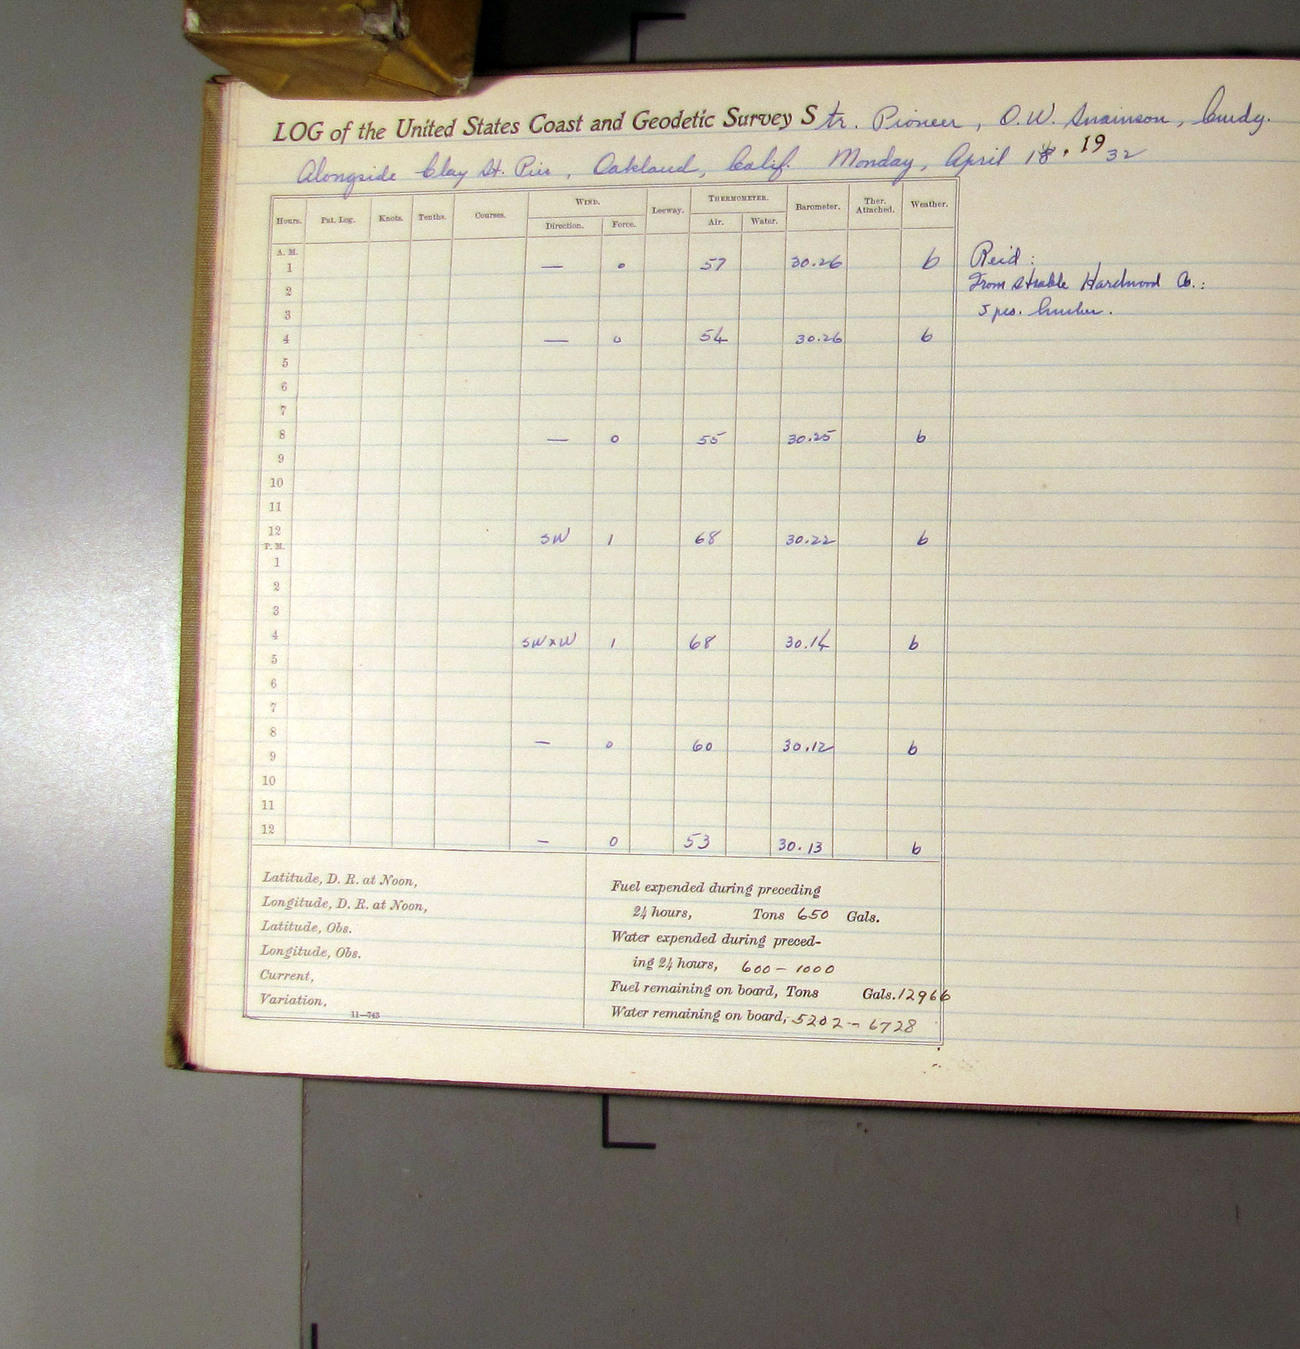 LOG of the United States Coast and Geodetic Survey Str. Pioneer, O.W. Swainson, Cmdg.
Alongside Clay St. Pier, Oakland, Calif. Monday, April 18, 1932
Hours. Pat. Log. Knots. Tenths. Courses. WIND. Leeway. THERMOMETER. Barometer. Ther. Attached. Weather.
Direction. Force. Air. Water.
A. M.
1 — 0 57 30.26 b
2
3
4 — 0 54 30.26 b
5
6
7
8 — 0 55 30.25 b
9
10
11
12 SW 1 68 30.22 b
P. M.
1
2
3
4 SWxW 1 68 30.14 b
5
6
7
8 — 0 60 30.12 b
9
10
11
12 — 0 53 30.13 b
Rec'd:
From Strable Hardwood Co.:
5 pcs. lumber.
Latitude, D. R. at Noon,
Longitude, D. R. at Noon,
Latitude, Obs.
Longitude, Obs.
Current,
Variation,
11—743
Fuel expended during preceding
24 hours, Tons 650 Gals.
Water expended during preced-
ing 24 hours, 600 - 1000
Fuel remaining on board, Tons Gals. 12966
Water remaining on board, 5202 - 6728